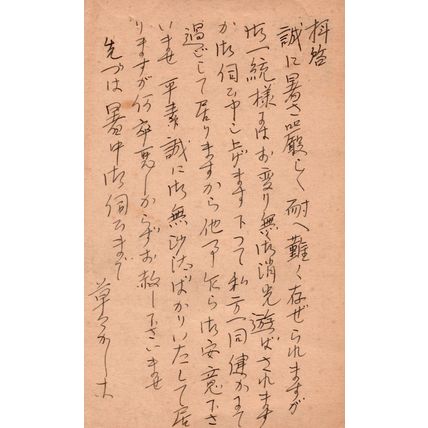 拝啓
誠に暑さ厳しく耐へ難く存ぜられますが
御一統様にはお変り無く御消光遊ばされます
か御伺ひ申し上げます下つて私方一同健かにて
過ごして居りますから他事乍ら御安意下さ
いませ平素誠に御無沙汰ばかりいたして居
りますが何卒悪しからずお赦し下さいませ
先づは暑中御伺ひまで
草々かしこ